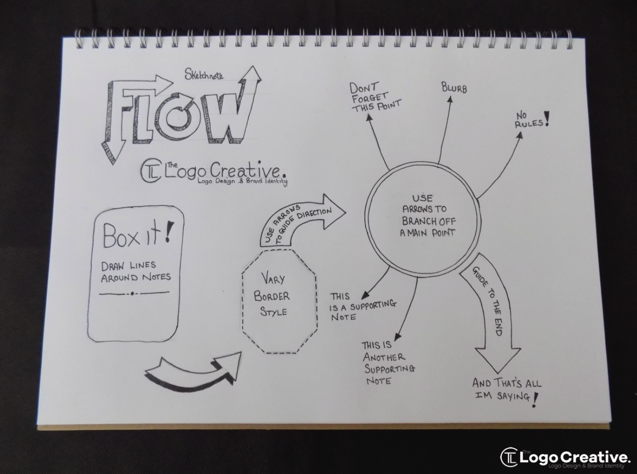 Sketchnote
FLOW
TL The
Logo Creative.
Logo Design & Brand Identity
Box it!
DRAW LINES
AROUND NOTES
VARY
BORDER
STYLE
USE ARROWS
TO GUIDE DIRECTION
USE
ARROWS TO
BRANCH OFF
A MAIN POINT
DONT
FORGET
THIS POINT
BLURB
NO
RULES!
THIS
IS A SUPPORTING
NOTE
THIS IS
ANOTHER
SUPPORTING
NOTE
GUIDE TO THE END
AND THAT'S ALL
IM SAYING!
TL Logo Creative.
Logo Design & Brand Identity